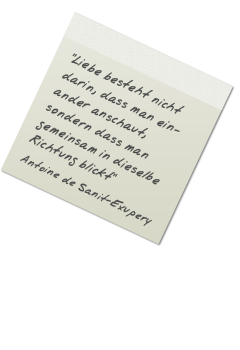 "Liebe besteht nicht
darin, dass man ein-
ander anschaut,
sondern dass man
gemeinsam in dieselbe
Richtung blickt"
Antoine de Sanit-Exupery